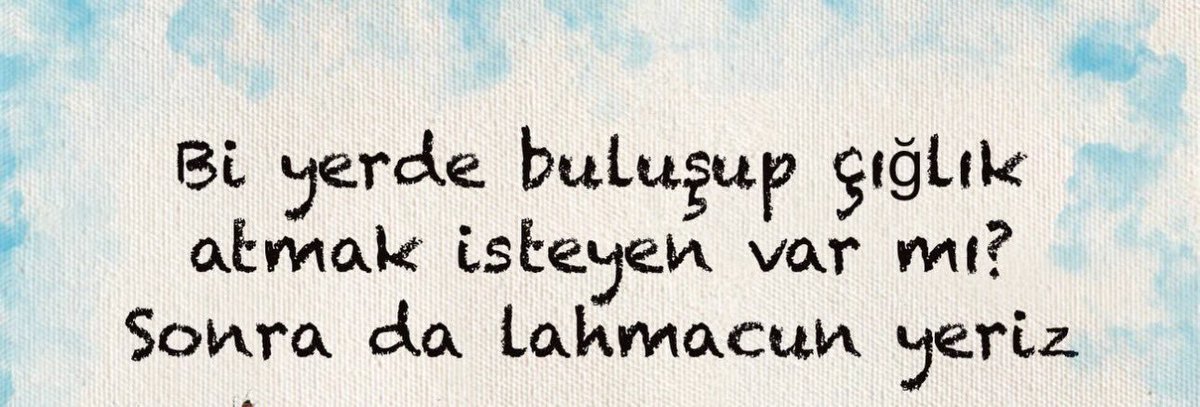 Bi yerde buluşup çığlık
atmak isteyen var mı?
Sonra da lahmacun yeriz